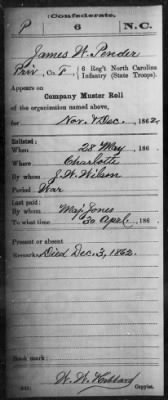 Confederate.
P 6 N.C.
James W. Pender
Priv, Co. F, 6 Reg't North Carolina
Infantry (State Troops)
Appears on
Company Muster Roll
of the organization named above,
for Nov. & Dec., 1862.
Enlisted:
When 28 May, 186
Where Charlotte
By whom J. W. Wilson
Period War
Last paid:
By whom Maj. Jones
To what time 30 April, 186
Present or absent
Remarks: Died Dec. 3, 1862.
Book mark:
W. W. Hibbard
Copyist.